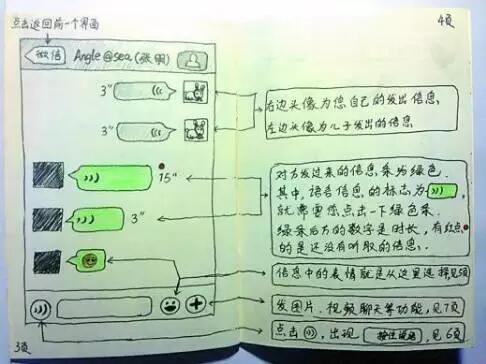 点击返回前一个界面
4页
微信
Angle@sea(张明)
3"
3"
15"
3"
右边头像为您自己的发出信息
左边头像为儿子发出的信息
对方发过来的信息条为绿色.
其中,语音信息的标志为
就需要您点击一下绿色条
绿条后方的数字是时长,有红点
的是还没有听取的信息.
信息中的表情就是从这里选择,见
发图片、视频聊天等功能,见7页
点击 ,出现 按住说话 ,见6页
3页